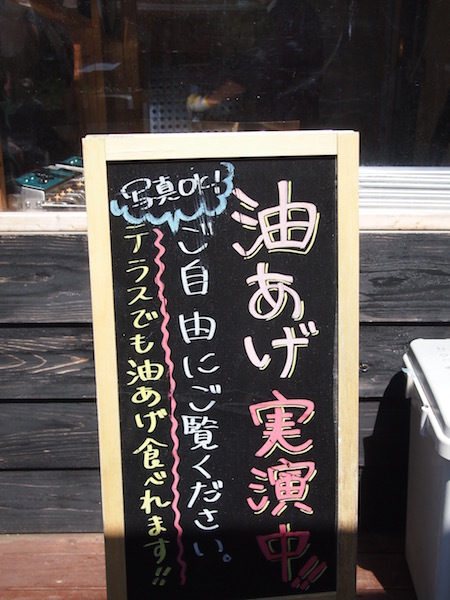 油あげ実演中!!
ご自由にご覧ください。
写真OK!
テラスでも油あげ食べれます!!